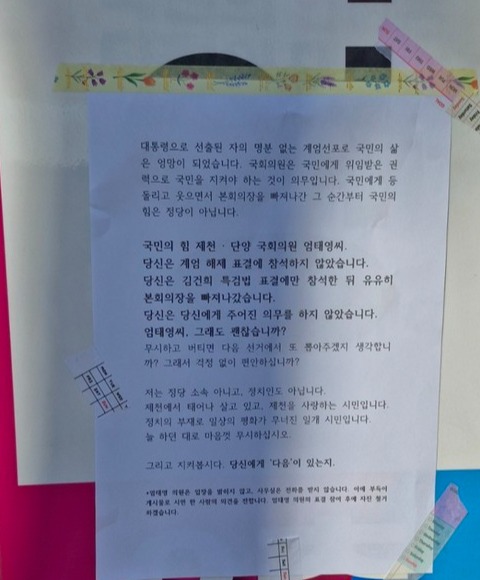 대통령으로 선출된 자의 명분 없는 계엄선포로 국민의 삶
은 엉망이 되었습니다. 국회의원은 국민에게 위임받은 권
력으로 국민을 지켜야 하는 것이 의무입니다. 국민에게 등
돌리고 웃으면서 본회의장을 빠져나간 그 순간부터 국민의
힘은 정당이 아닙니다.
국민의 힘 제천 · 단양 국회의원 엄태영씨.
당신은 계엄 해제 표결에 참석하지 않았습니다.
당신은 김건희 특검법 표결에만 참석한 뒤 유유히
본회의장을 빠져나갔습니다.
당신은 당신에게 주어진 의무를 하지 않았습니다.
엄태영씨, 그래도 괜찮습니까?
무시하고 버티면 다음 선거에서 또 뽑아주겠지 생각합니
까? 그래서 걱정 없이 편안하십니까?
저는 정당 소속 아니고, 정치인도 아닙니다.
제천에서 태어나 살고 있고, 제천을 사랑하는 시민입니다.
정치의 부재로 일상의 평화가 무너진 일개 시민입니다.
늘 하던 대로 마음껏 무시하십시오.
그리고 지켜봅시다. 당신에게 '다음'이 있는지.
*엄태영 의원은 입장을 밝히지 않고, 사무실은 전화를 받지 않습니다. 이에 부득이
게시물로 시민 한 사람의 의견을 전합니다. 엄태영 의원의 표결 참여 후에 자진 철거
하겠습니다.